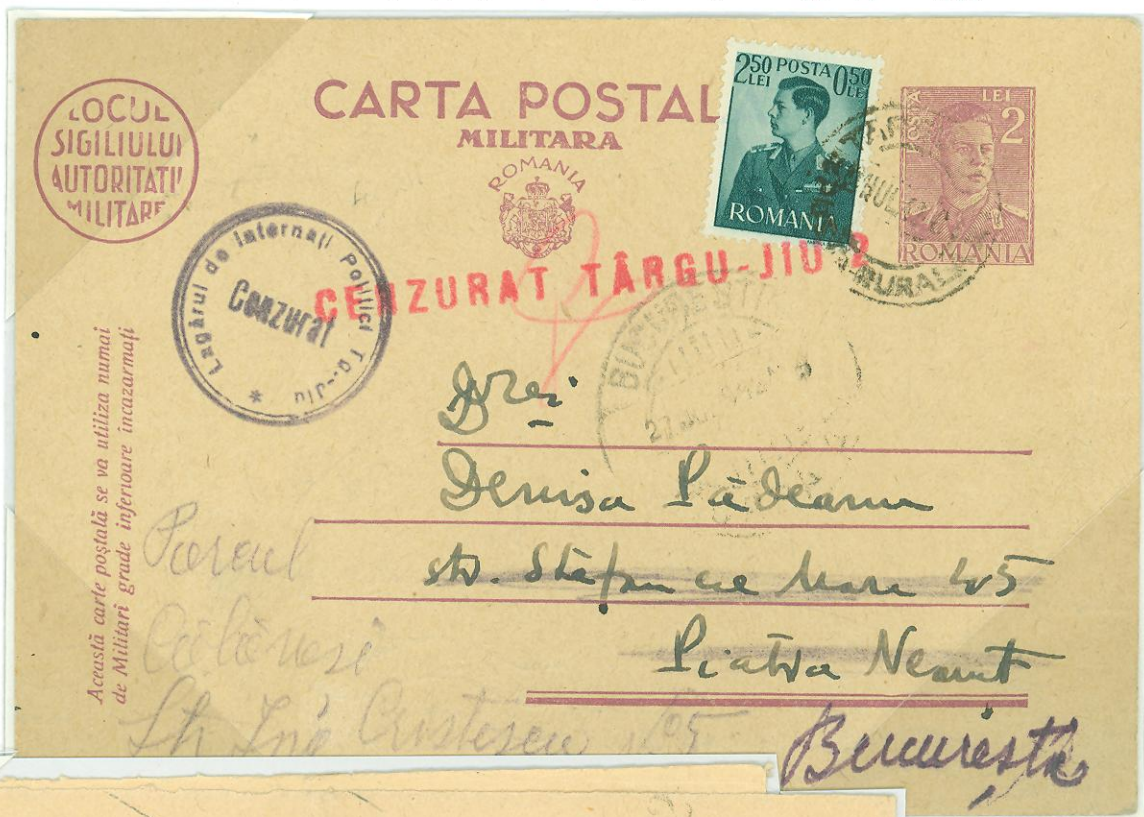 LOCUL
SIGILIULUI
AUTORITATII
MILITARE
CARTA POSTAL
MILITARA
ROMANIA
250 LEI POSTA 0,50 LEI
ROMANIA
POSTA LEI 2
ROMANIA
Lagărul de Internați Politici Tg-Jiu *
Cenzurat
CENZURAT TÂRGU-JIU 2
BUCUREȘTI
27
Această carte poștală se va utiliza numai
de Militari grade inferioare incazarmați
D-rei
Denisa Pădeanu
str. Ștefan cel Mare 45
Piatra Neamț
București
Parcul
Str Ing Cristescu